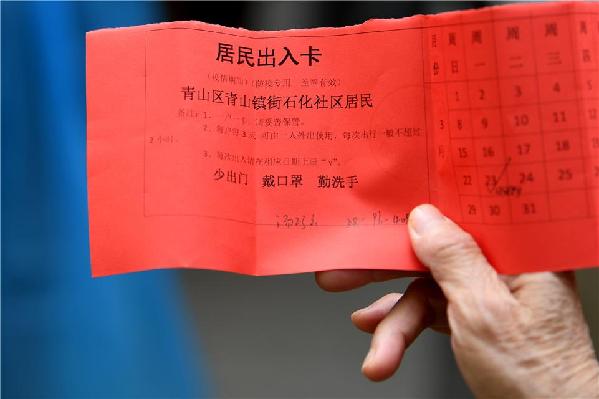 居民出入卡
(疫情期间)(防疫专用 签字有效)
青山区青山镇街石化社区居民
备注:1、一户一卡,请妥善保管。
2、每户每3天 可由一人外出使用,每次出行一般不超过
2小时。
3、每次出入请在相应日期上画“√”。
少出门 戴口罩 勤洗手
月份 周日 周一 周二 周三
3月
1 2 3 4
8 9 10 11
15 16 17 18
22 23 24 25
29 30 31